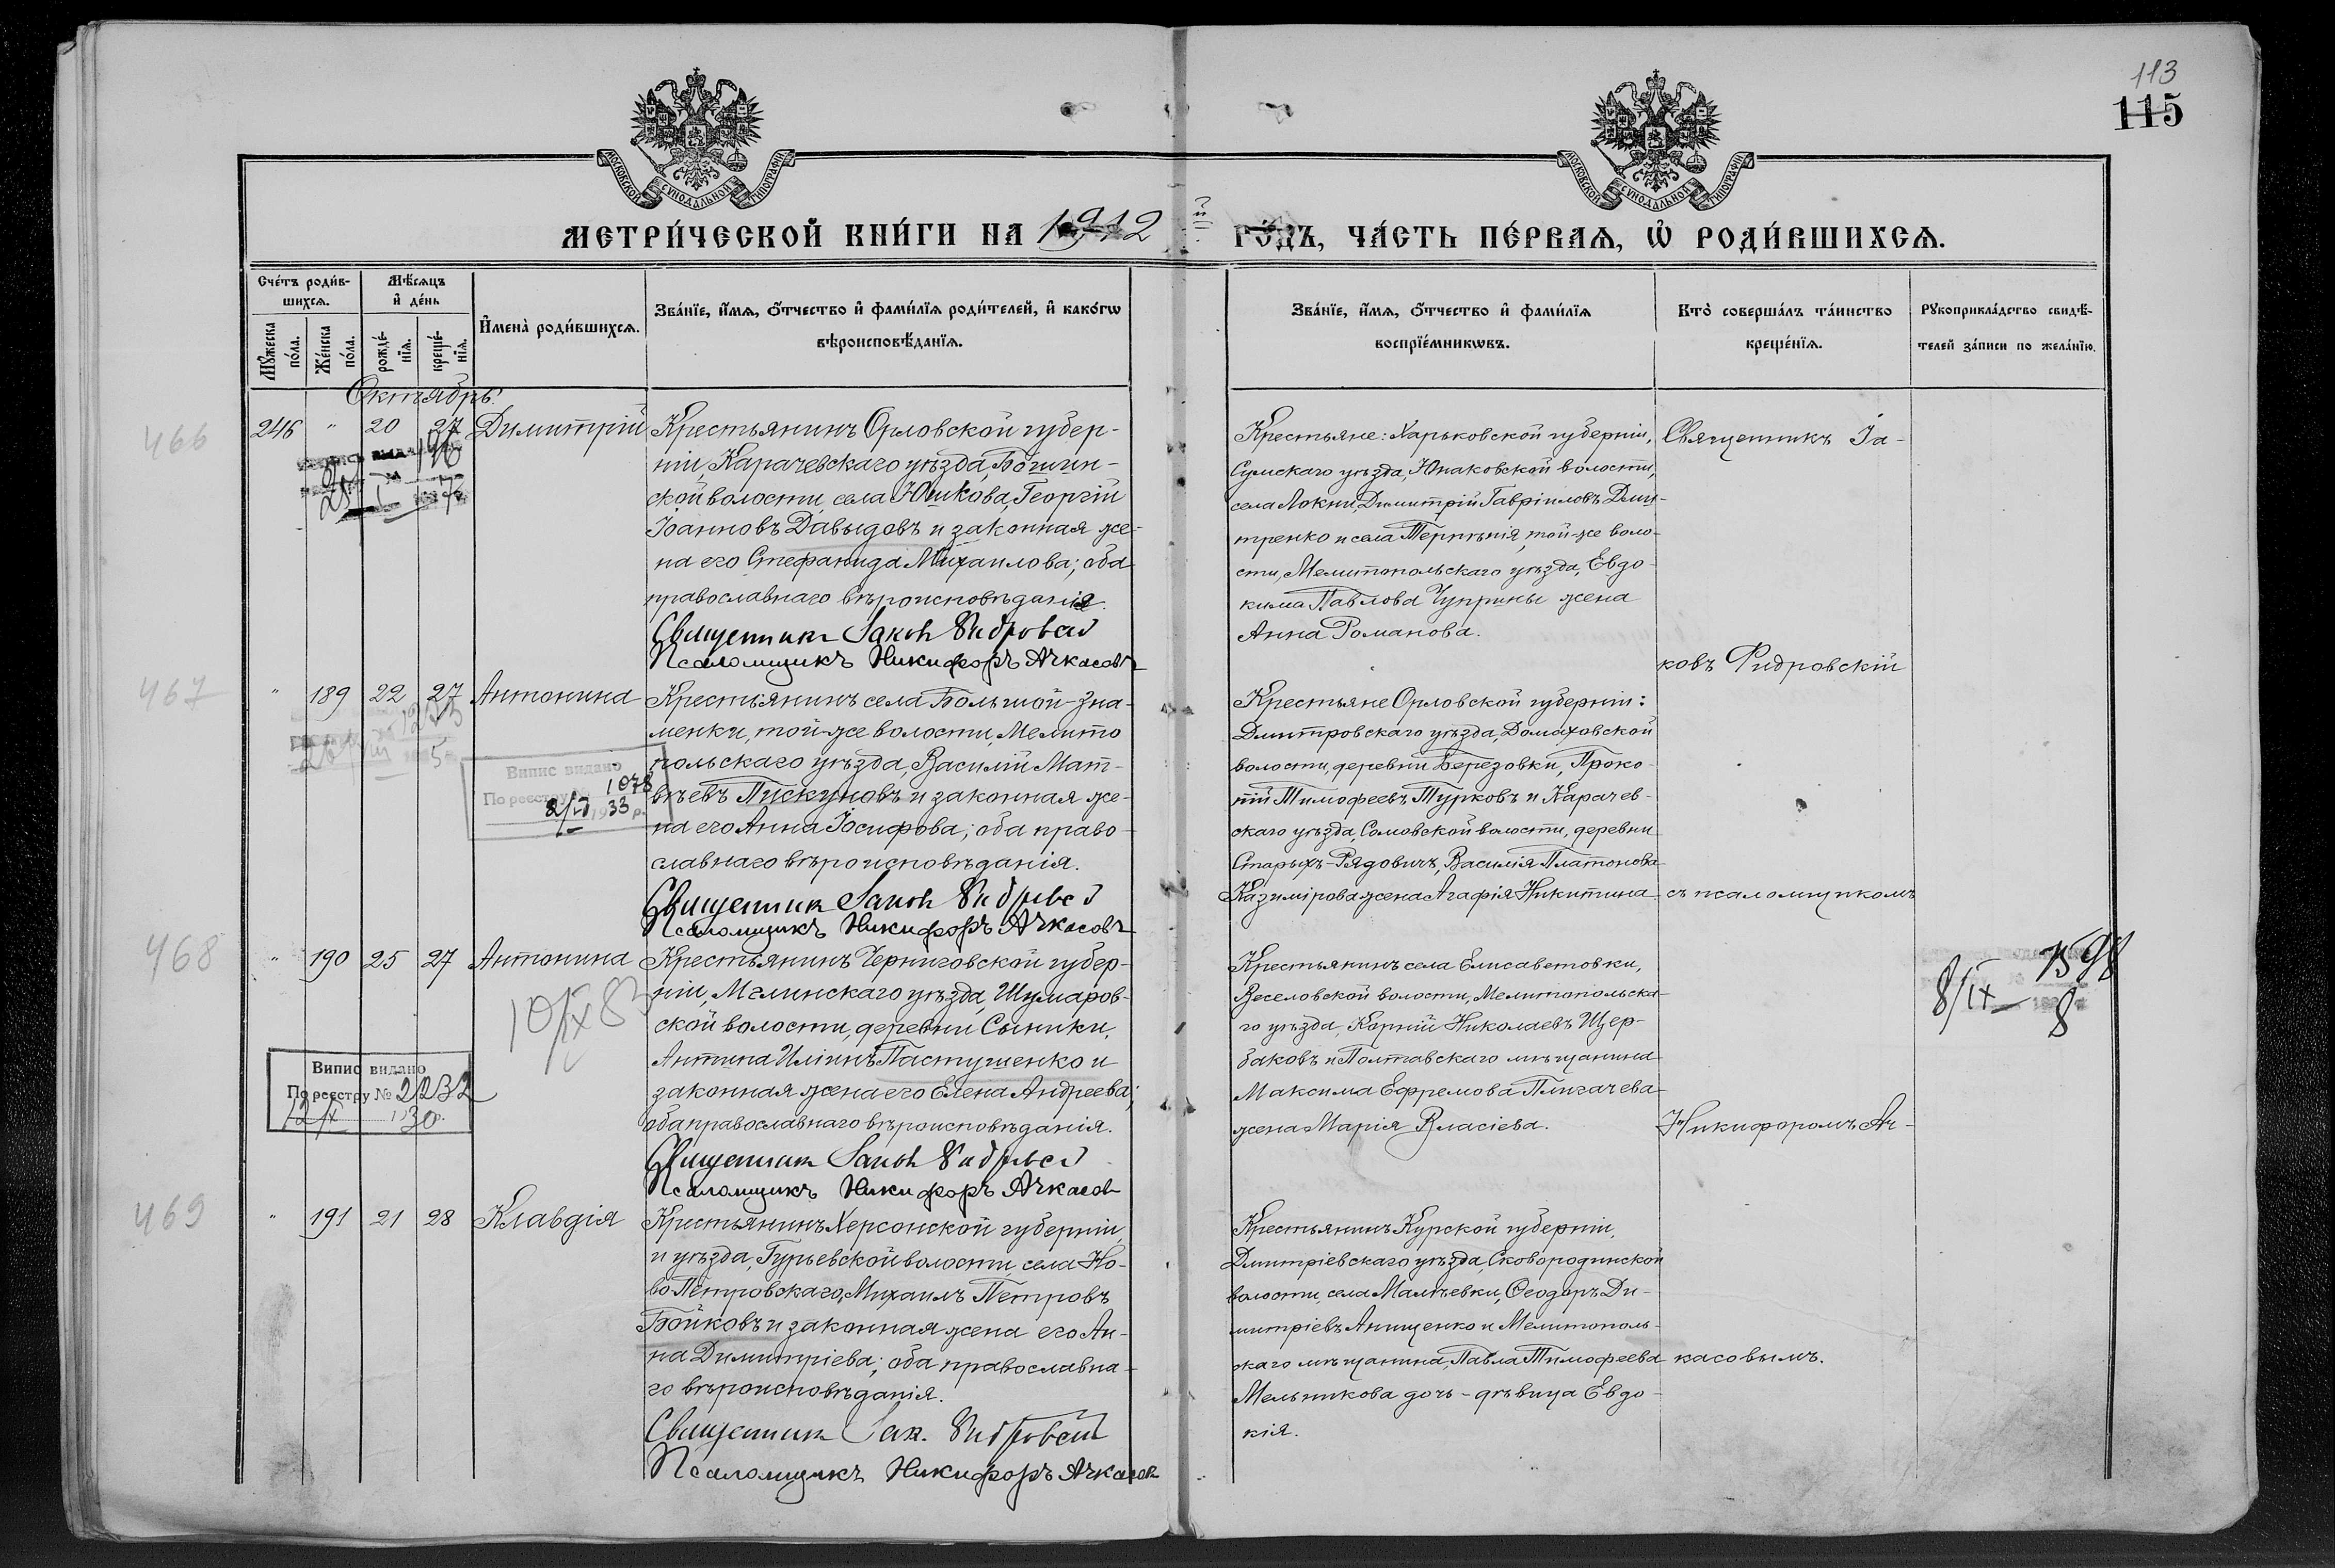 113
115
МОСКОВСКОЙ СѴНОДАЛЬНОЙ ТИПОГРАФІИ
МОСКОВСКОЙ СѴНОДАЛЬНОЙ ТИПОГРАФІИ
МЕТРИ́ЧЕСКОЙ КНИ́ГИ НА 1912 й
ГО́ДЪ, ЧА́СТЬ ПЕ́РВАѦ, Ѡ҆ РОДИ́ВШИХСѦ.
Сче́тъ роди́в-
шихсѧ.
Мꙋ́жеска по́ла.
Же́нска по́ла.
Мѣ́сѧцъ
и҆ де́нь
рожде́-
нїѧ.
креще́-
нїѧ.
И҆мена̀ роди́вшихсѧ.
Зва́нїе, и҆́мѧ, ѻ҆́тчество и҆ фами́лїѧ роди́телей, и҆ како́гѡ
вѣроисповѣ́данїѧ.
Зва́нїе, и҆́мѧ, ѻ҆́тчество и҆ фами́лїѧ
воспрїе́мникѡвъ.
Кто̀ соверша́лъ та́инство
креще́нїѧ.
Рꙋкоприкла́дство свидѣ́-
телей за́писи по жела́нїю.
Октябрь.
466
246 " 20 27 Димитрій
Крестьянинъ Орловской губер-
ніи, Карачевскаго уѣзда, Бошин-
ской волости, села Юшкова, Георгій
Іоанновъ Давыдовъ и законная же-
на его Стефанида Михаилова; оба
православнаго вѣроисповѣданія.
Священникъ Іаковъ Фидровскій
Псаломщикъ Никифоръ Ачкасовъ
Крестьяне: Харьковской губерніи,
Сумскаго уѣзда, Юнаковской волости,
села Локни, Димитрій Гавріиловъ Дми-
тренко и села Терпѣнія, той-же воло-
сти, Мелитопольскаго уѣзда, Евдо-
кима Павлова Чуприны жена
Анна Романова.
Священникъ Іа-
ковъ Фидровскій
467
" 189 22 27 Антонина
Випис видано
По реестру 1078
1933 р.
Крестьянинъ села Большой-Зна-
менки, той-же волости, Мелито
польскаго уѣзда, Василій Мат-
вѣевъ Пискуновъ и законная же-
на его Анна Іосифова; оба право-
славнаго вѣроисповѣданія.
Священникъ Іаковъ Фидровскій
Псаломщикъ Никифоръ Ачкасовъ
Крестьяне Орловской губерніи:
Дмитровскаго уѣзда, Домаховской
волости, деревни Березовки, Проко-
пій Тимофеевъ Турковъ и Карачев-
скаго уѣзда, Сомовской волости, деревни
Старыхъ-Рядовичъ, Василія Платонова
Казимірова жена Агафія Никитина
съ псаломщикомъ
468
" 190 25 27 Антонина
10/IX 83
Випис видано
По реестру № 2232
12/IX 1930 р.
Крестьянинъ Черниговской губер-
ніи, Мглинскаго уѣзда, Шумаров-
ской волости, деревни Сыники,
Антипа Иліинъ Пастушенко и
законная жена его Елена Андреева;
оба православнаго вѣроисповѣданія.
Священникъ Іаковъ Фидровскій
Псаломщикъ Никифоръ Ачкасовъ
Крестьянинъ села Елисаветовки,
Веселовской волости, Мелитопольска-
го уѣзда, Корній Николаевъ Щер-
баковъ и Полтавскаго мѣщанина
Максима Ефремова Плигачева
жена Марія Власіева.
Никифоромъ Ач-
1598
8/IX 8
469
" 191 21 28 Клавдія
Крестьянинъ Херсонской губерніи,
и уѣзда, Гурьевской волости, села Но-
во Петровскаго, Михаилъ Петровъ
Бойковъ и законная жена его Ан-
на Димитріева; оба православна-
го вѣроисповѣданія.
Священникъ Іак. Фидровскій
Псаломщикъ Никифоръ Ачкасовъ
Крестьянинъ Курской губерніи,
Дмитріевскаго уѣзда, Сковородинской
волости, села Малѣевки, Ѳеодоръ Ди-
митріевъ Анищенко и Мелитополь-
скаго мѣщанина, Павла Тимофеева
Мельникова дочь-дѣвица Евдо-
кія.
касовымъ.